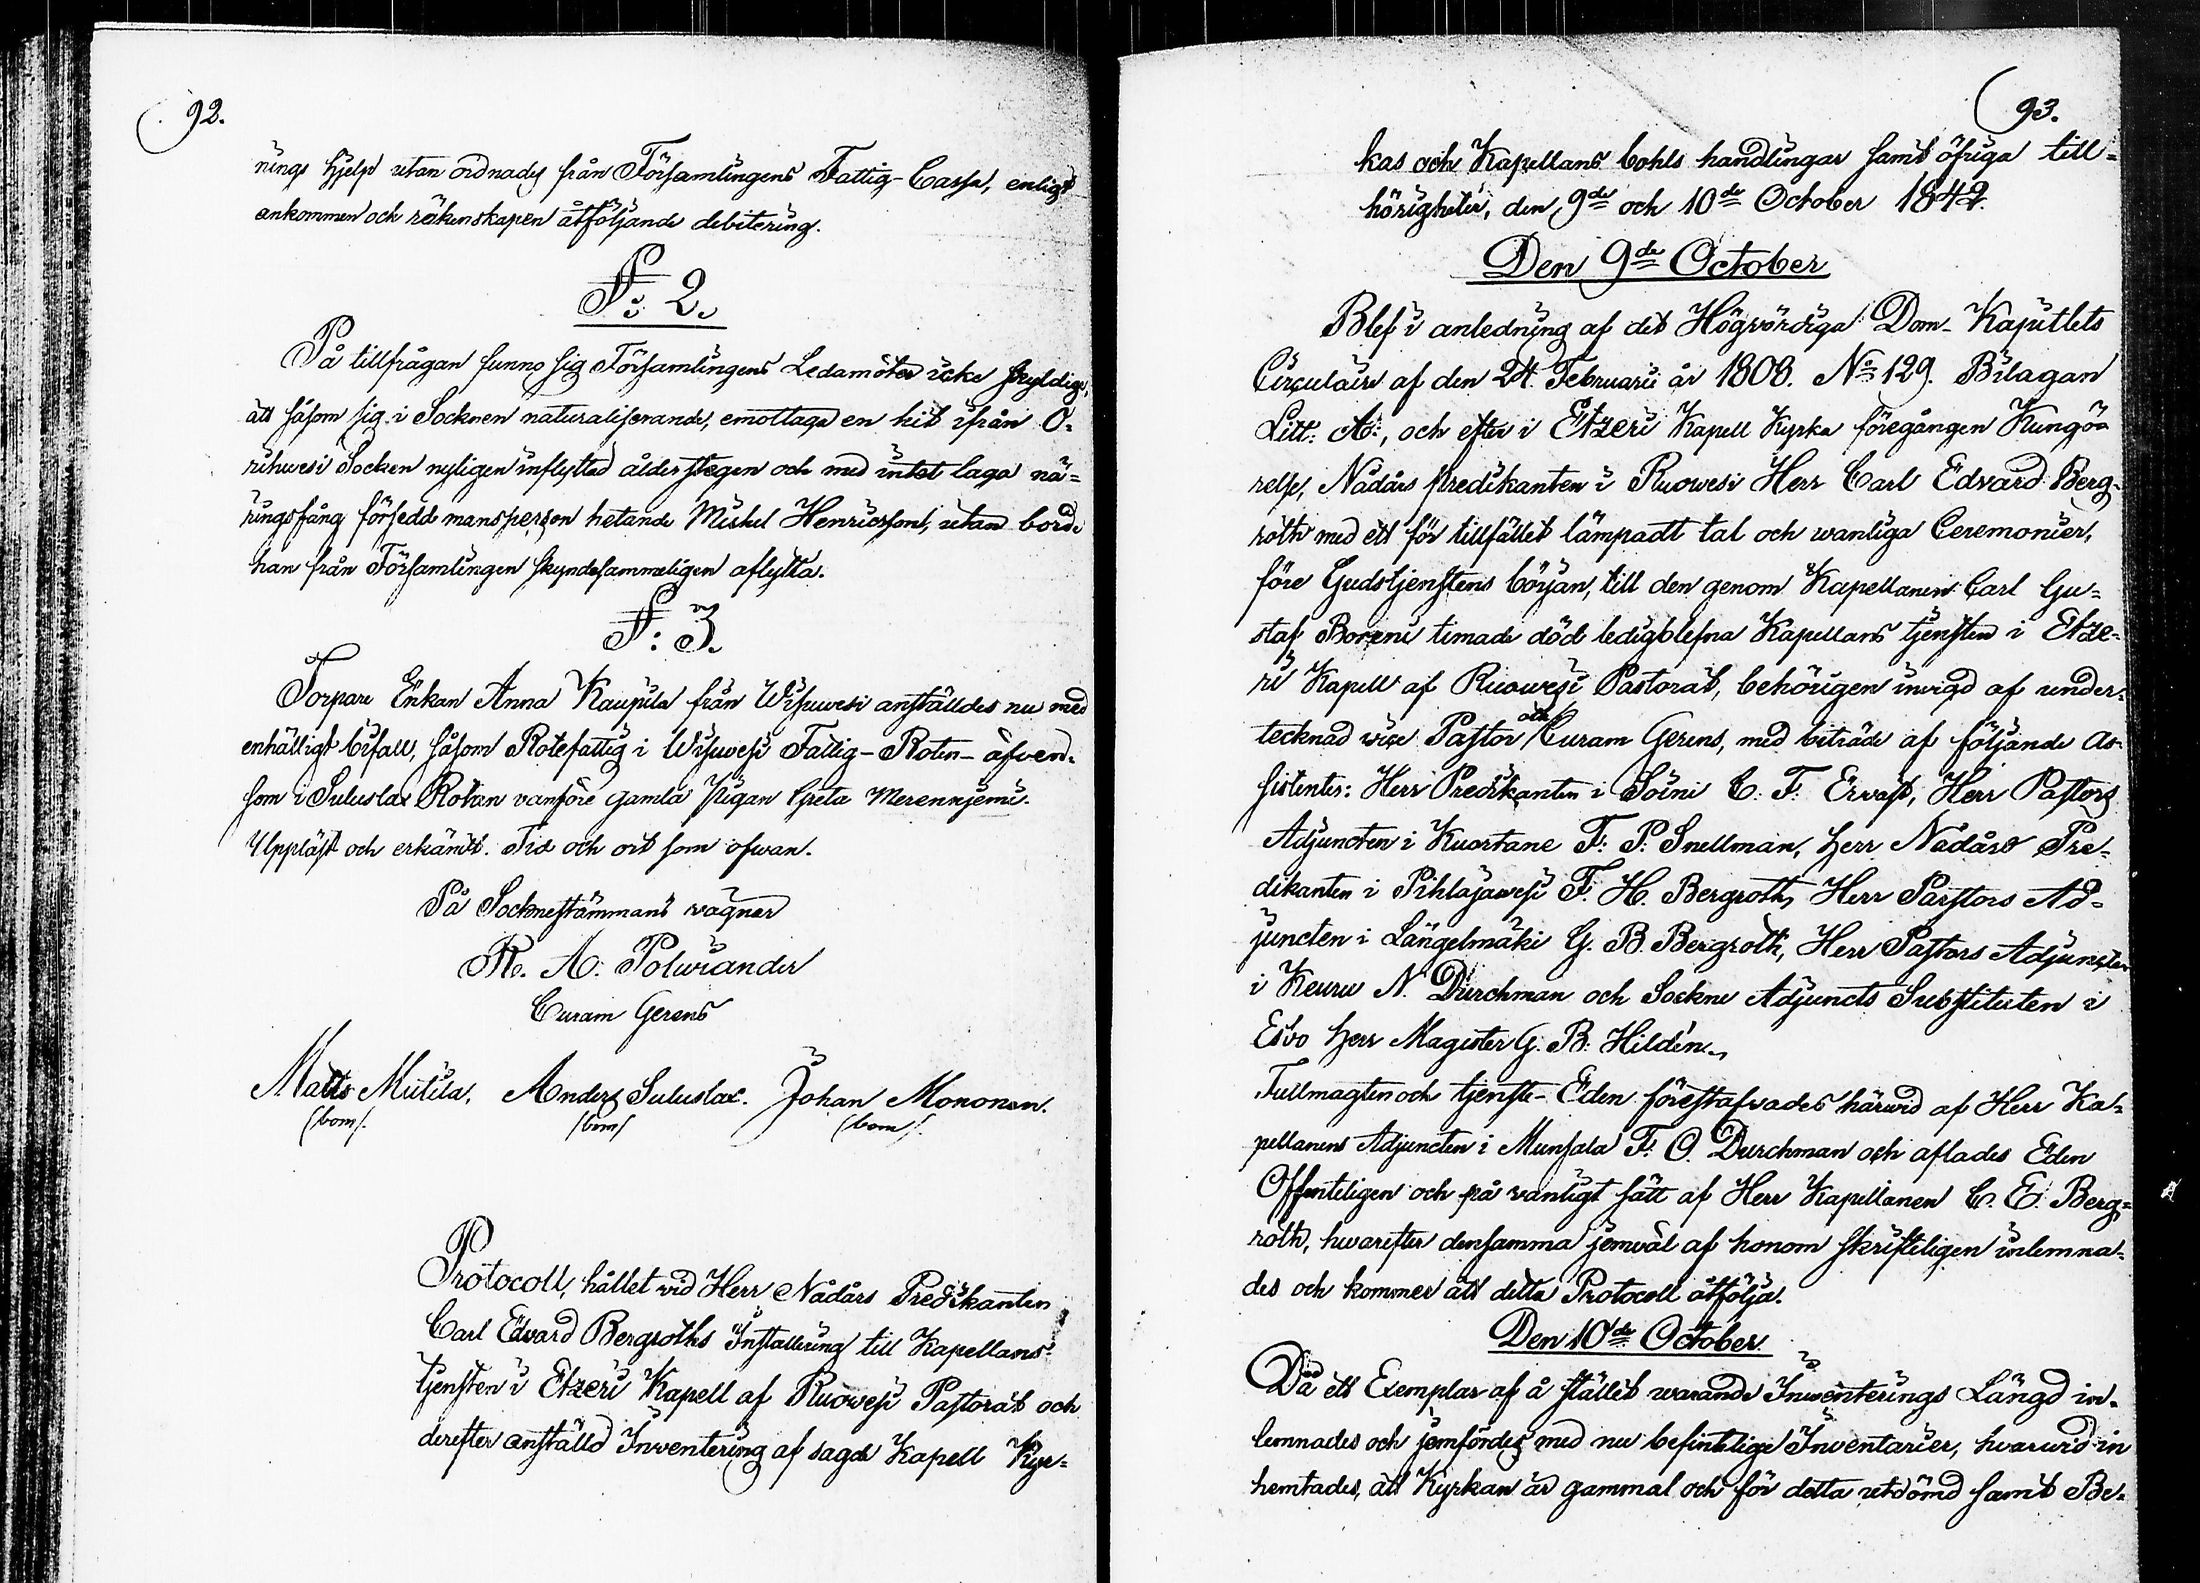 92.
nings hjelp utan ordnades från Församlingens Fattig-Cassa, enligt
ankommen och räkenskapen åtföljande debitering.
§: 2.
På tillfrågan funno sig Församlingens Ledamöter icke skyldige,
att såsom sig i Socknen naturaliserande, emottaga en hit ifrån O-
rihwesi Socken nyligen inflyttad ålderstegen och med intet laga nä-
ringsfång försedd mansperson hetande Mickel Henricsson, utan borde
han från Församlingen skyndesammeligen aflytta.
§: 3.
Torpare Enkan Anna Kaupila från Wisuwesi anställdes nu med
enhälligt bifall, såsom Rotefattig i Wisuwesi Fattig-Roten- äfven-
som i Suluslax Rotan vanföre gamla pigan Greta Merenniemi.
Uppläst och erkändt. Tid och ort som ofwan.
På Socknestämmans vägner
R. A. Polwiander
Curam Gerens
Matts Mutila. Anders Suluslax. Johan Mononen.
/bom/. /bom/ /bom/.
Protocoll, hållet vid Herr Nådårs Predikanten
Carl Edvard Bergroths Installering till Kapellans-
tjensten i Etzeri Kapell af Ruowesi Pastorat och
derefter anställd Inventering af sagde Kapell Kyr-
93.
kas och Kapellans bohls handlingar samt öfriga till-
hörigheter, den 9de och 10de October 1842.
Den 9de October
Blef i anledning af det Högvördiga Dom-Kapitlets
Circulaire af den 24. Februarii år 1808. No 129. Bilagan
Litt: A:, och efter i Etzeri Kapell Kyrka föregången Kungö-
relse, Nådårs predikanten i Ruowesi Herr Carl Edvard Berg-
roth med ett för tillfället lämpadt tal och wanliga Ceremonier,
före Gudstjenstens början, till den genom Kapellanen Carl Gu-
staf Boreni timade död ledigblefna Kapellans tjensten i Etze-
ri Kapell af Ruowesi Pastorat, behörigen invigd af under-
tecknad vice Pastor och Curam Gerens, med biträde af följande As-
sistenter: Herr Predikanten i Soini C. F. Ervast, Herr Pastors
Adjuncten i Kuortane F: P. Snellman, herr Nådårs Pre-
dikanten i Pihlajawesi F. H. Bergroth, Herr Parstors Ad-
juncten i Längelmäki G. B. Bergroth, Herr Pastors Adjuncten
i Keuru N. Durchman och Sockne Adjuncts Substituten i
Esbo herr Magister G. B. Hildén.
Fullmagten och tjenste-Eden förestafvades härwid af Herr Ka-
pellanens Adjuncten i Munsala F. O. Durchman och aflades Eden
Offenteligen och på vanligt sätt af Herr Kapellanen C. E. Berg-
roth, hwarefter densamma jemväl af honom skrifteligen inlemna-
des och kommer att detta Protocoll åtfölja.
Den 10de October
Då ett Exemplar af å stället warande Inwenterings Längd in-
lemnades och jemfördes med nu befintelige Inventarier, hvarwid in
hemtades, att Kyrkan är gammal och för detta utdömd samt Be-